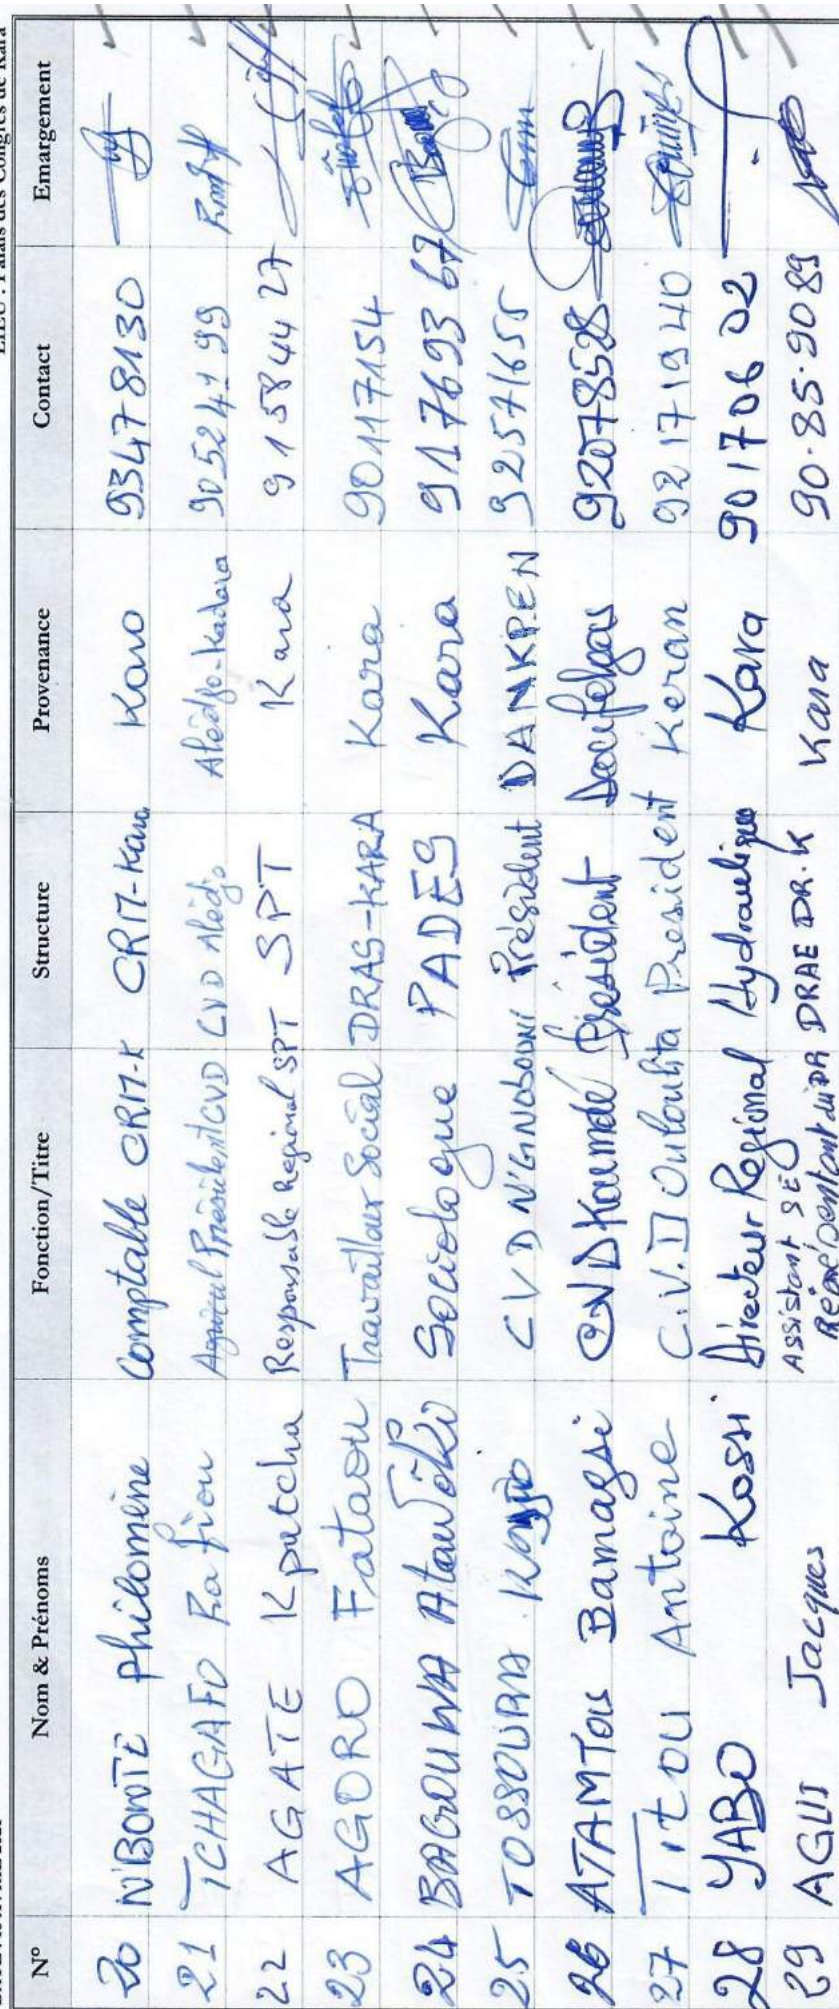 LIEU : Palais des Congrès de Kara
N° Nom & Prénoms Fonction/Titre Structure Provenance Contact Emargement
20 N'BONTE Philomène Comptable CRM-K CRM-Kara Kara 93478130
21 TCHAGAFO Rafiou Président CVD CVD Alédjo Alédjo-Kadara 90524199
22 AGATE Kpatcha Responsable Régional SPT SPT Kara 91584427
23 AGORO Fataou Travailleur Social DRAS-KARA Kara 90117154
24 BAGOUWA Sociologue PADES Kara 91769367
25 TOSSOURA CVD Président DANKPEN 92571655
26 ATAMTOU Bamagsi CVD Koumdé Président Doufelgou 92078528
27 TITOU Antoine C.V.D Ouloulita President Keran 92171940
28 YABO Kossi Directeur Regional Hydraulique Kara 90170602
29 AGUI Jacques Assistant SE DRAE DR.K Kara 90.85.90 89
Représentant du DR